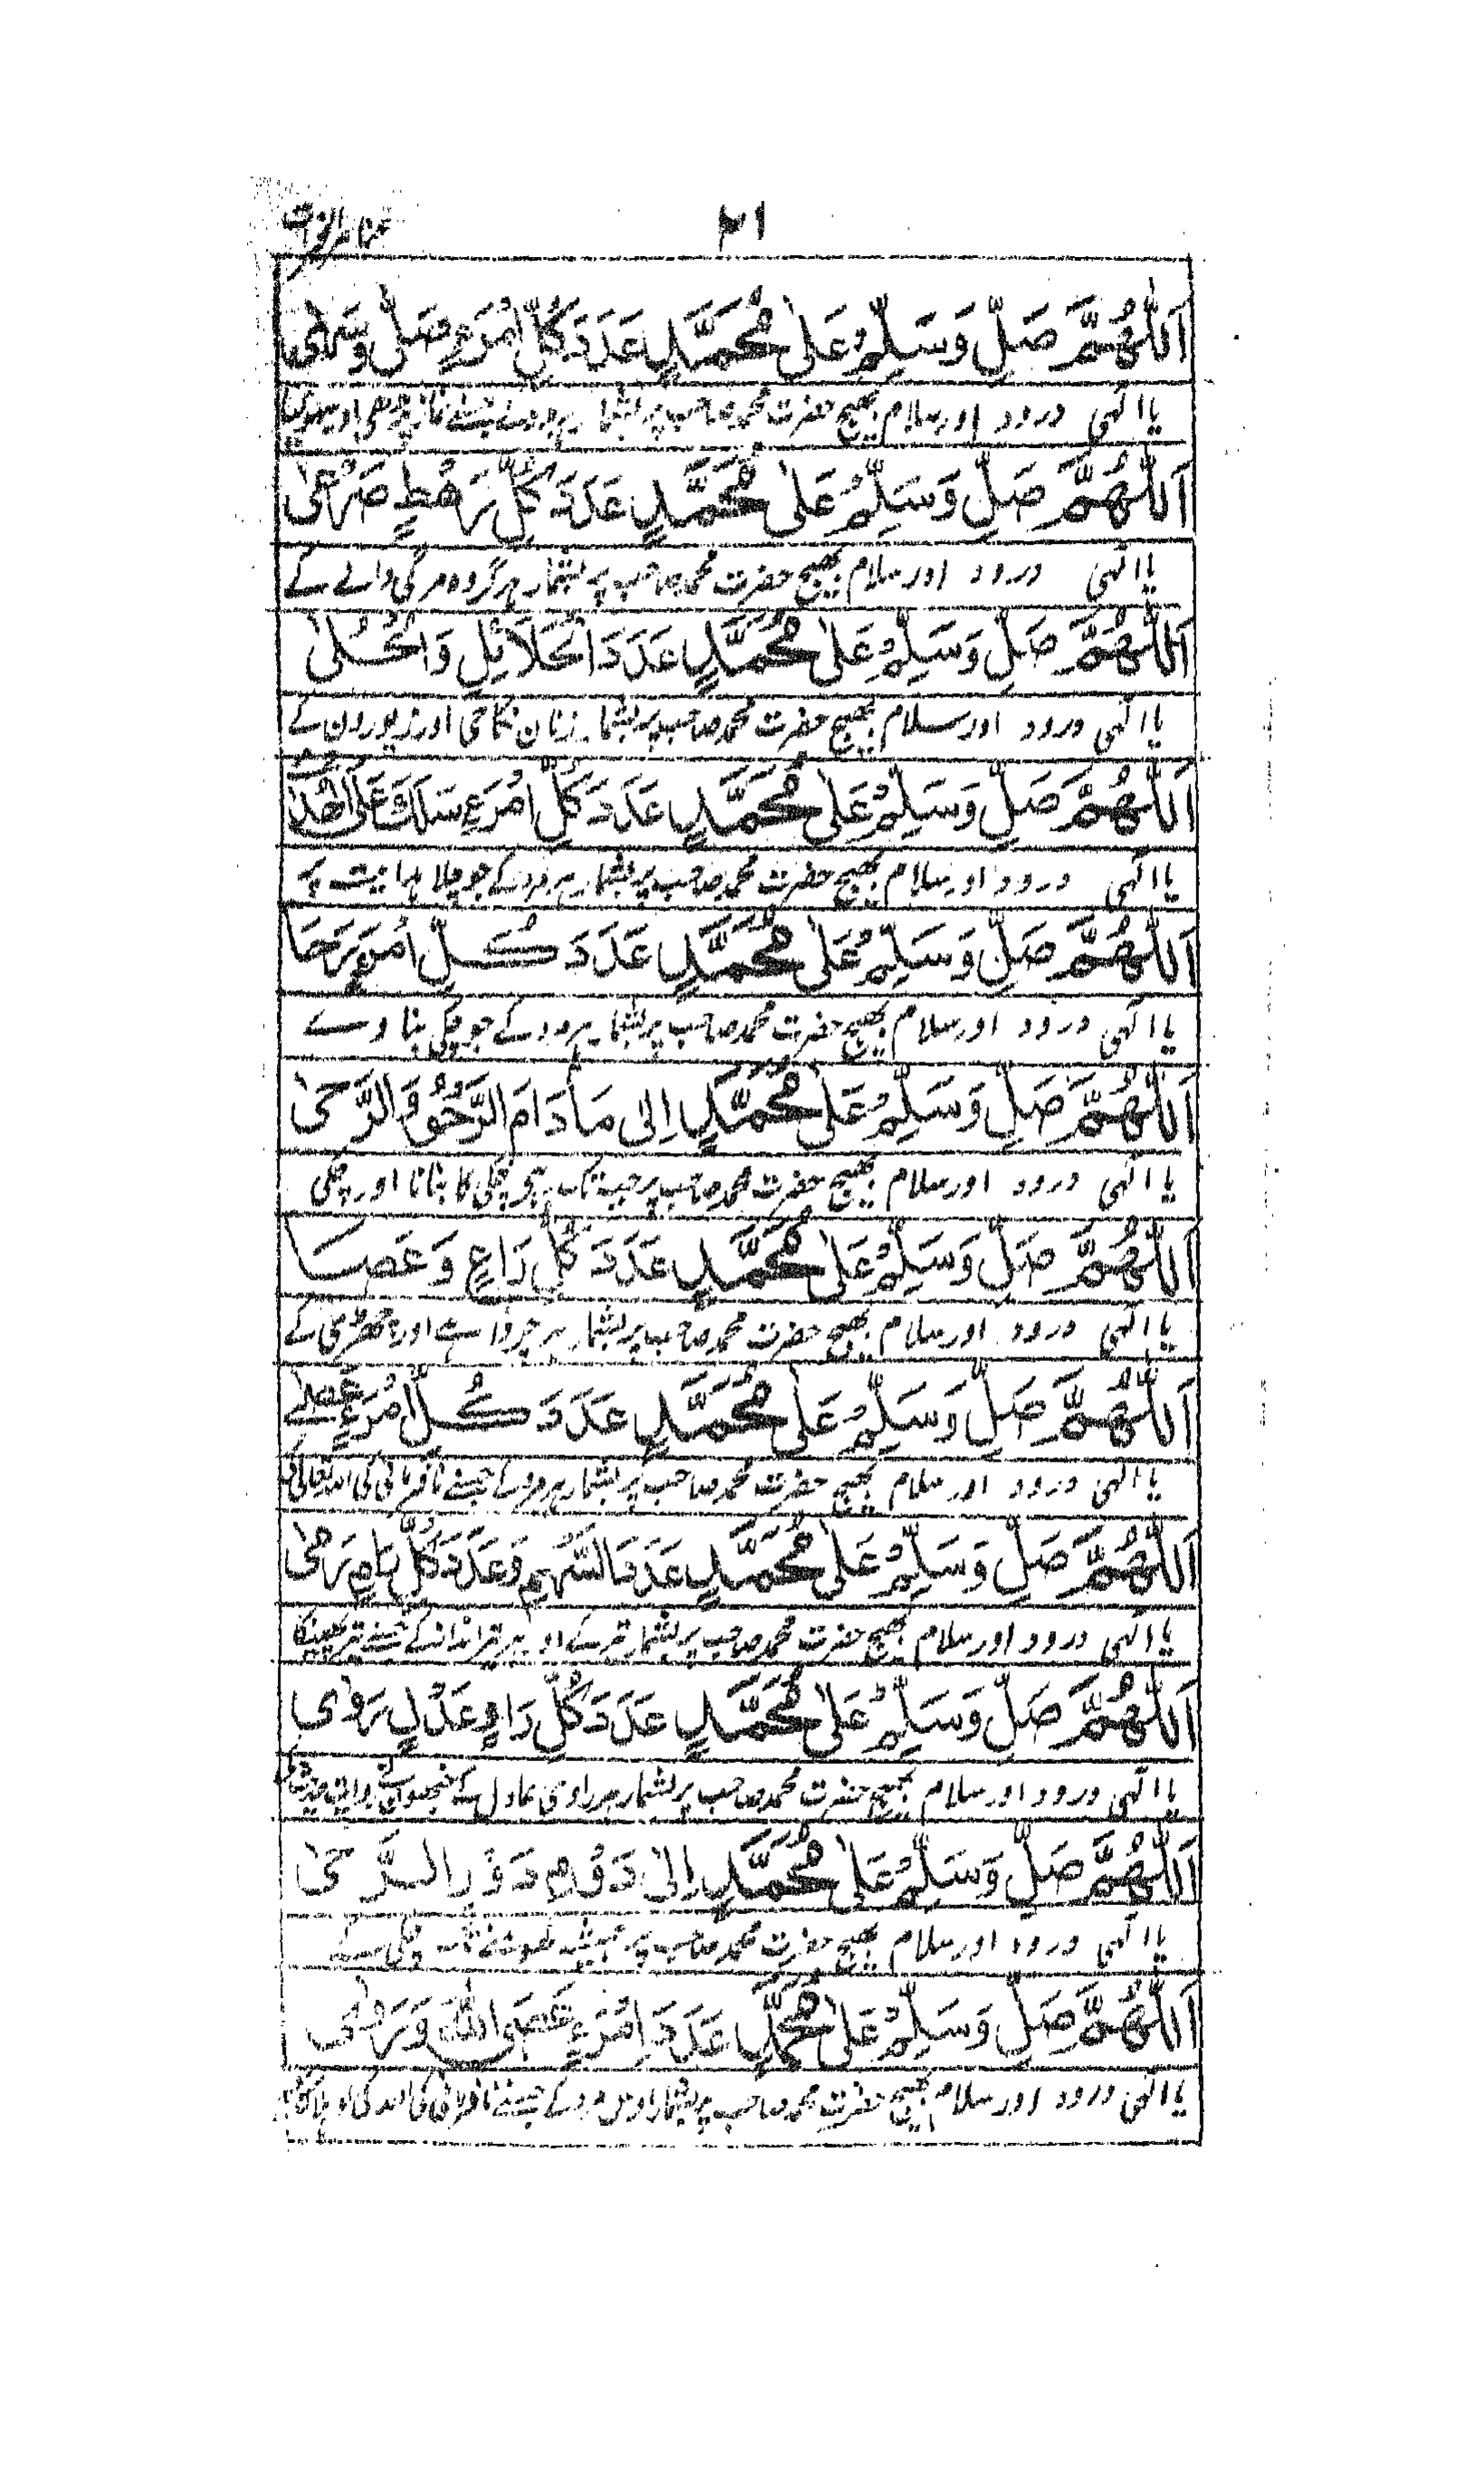 ٢١
اَللّٰهُمَّ صَلِّ وَسَلِّمْ عَلٰی مُحَمَّدٍ عَدَدَ كُلِّ امْرَءٍ صَلّٰی
یا الٰہی درود اور سلام بھیج حضرت محمد صاحب پر بشمار ہر مرد کے جسنے نماز پڑھی اور
اَللّٰهُمَّ صَلِّ وَسَلِّمْ عَلٰی مُحَمَّدٍ عَدَدَ كُلِّ رَهْطٍ صَرْعٰی
یا الٰہی درود اور سلام بھیج حضرت محمد صاحب پر بشمار ہر گروہ مرگی والے کے
اَللّٰهُمَّ صَلِّ وَسَلِّمْ عَلٰی مُحَمَّدٍ عَدَدَ الْحَلَائِلِ وَالْحُلٰی
یا الٰہی درود اور سلام بھیج حضرت محمد صاحب پر بشمار زنان نکاحی اور زیورون کے
اَللّٰهُمَّ صَلِّ وَسَلِّمْ عَلٰی مُحَمَّدٍ عَدَدَ كُلِّ امْرَءٍ سَلَكَ عَلَی الْهُدٰی
یا الٰہی درود اور سلام بھیج حضرت محمد صاحب پر بشمار ہر مرد کے جو چلا ہدایت پر
اَللّٰهُمَّ صَلِّ وَسَلِّمْ عَلٰی مُحَمَّدٍ عَدَدَ كُلِّ امْرَءٍ رَحَا
یا الٰہی درود اور سلام بھیج حضرت محمد صاحب پر بشمار ہر مرد کے جو چکی بناوے
اَللّٰهُمَّ صَلِّ وَسَلِّمْ عَلٰی مُحَمَّدٍ اِلٰی مَادَامَ الرَّحْوُ وَالرَّحٰی
یا الٰہی درود اور سلام بھیج حضرت محمد صاحب پر جب تک ہے چکی کا بنانا اور چکی
اَللّٰهُمَّ صَلِّ وَسَلِّمْ عَلٰی مُحَمَّدٍ عَدَدَ كُلِّ رَاعٍ وَعَصَا
یا الٰہی درود اور سلام بھیج حضرت محمد صاحب پر بشمار ہر چرواہے اور چھڑی کے
اَللّٰهُمَّ صَلِّ وَسَلِّمْ عَلٰی مُحَمَّدٍ عَدَدَ كُلِّ امْرَءٍ عَصٰی
یا الٰہی درود اور سلام بھیج حضرت محمد صاحب پر بشمار ہر مرد کے جسنے نافرمانی کی اللہ تعالٰی کی
اَللّٰهُمَّ صَلِّ وَسَلِّمْ عَلٰی مُحَمَّدٍ عَدَدَ السَّهْمِ وَعَدَدَ كُلِّ رَامٍ رَمٰی
یا الٰہی درود اور سلام بھیج حضرت محمد صاحب پر بشمار تیر کے اور ہر تیر انداز کے جسنے تیر پھینکا
اَللّٰهُمَّ صَلِّ وَسَلِّمْ عَلٰی مُحَمَّدٍ عَدَدَ كُلِّ رَاوٍ عَدْلٍ رَوٰی
یا الٰہی درود اور سلام بھیج حضرت محمد صاحب پر بشمار ہر راوی عادل کے
اَللّٰهُمَّ صَلِّ وَسَلِّمْ عَلٰی مُحَمَّدٍ اِلٰی دَوْمِ دَوْرِ الرَّحٰی
یا الٰہی درود اور سلام بھیج حضرت محمد صاحب پر ہمیشہ چکی کے
اَللّٰهُمَّ صَلِّ وَسَلِّمْ عَلٰی مُحَمَّدٍ عَدَدَ امْرَءٍ عَصَی اللّٰهَ وَ
یا الٰہی درود اور سلام بھیج حضرت محمد صاحب پر بشمار اوس مرد کے جسنے نافرمانی کی اللہ کی